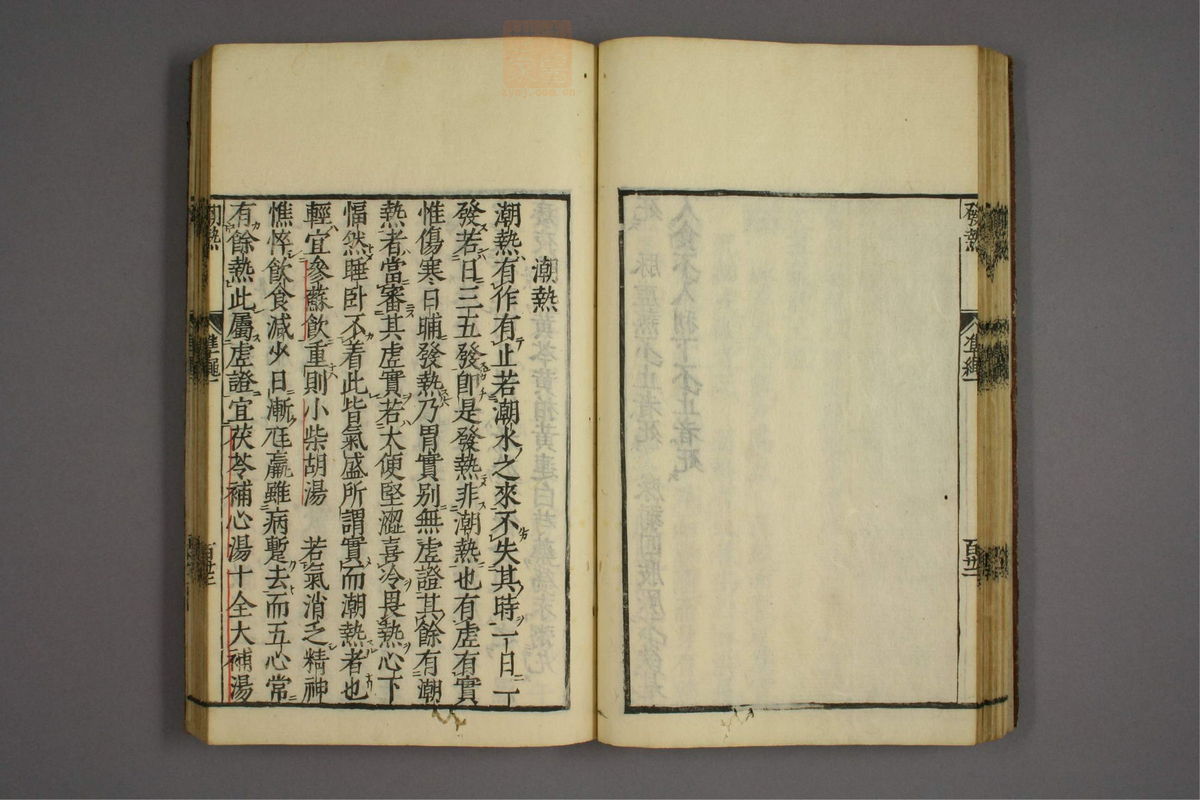 發熱
準繩一
百卅二
潮熱
潮熱有作有止若潮水之來不失其時一日一
發若日三五發即是發熱非潮熱也有虚有實
惟傷寒日晡發熱乃胃實别無虚證其餘有潮
熱者當審其虚實若大便堅澀喜冷畏熱心下
愊然睡卧不着此皆氣盛所謂實而潮熱者也
輕宜參蘇飲重則小柴胡湯　若氣消乏精神
憔悴飲食減少日漸尫羸雖病暫去而五心常
有餘熱此屬虚證宜茯苓補心湯十全大補湯
潮熱
準繩一